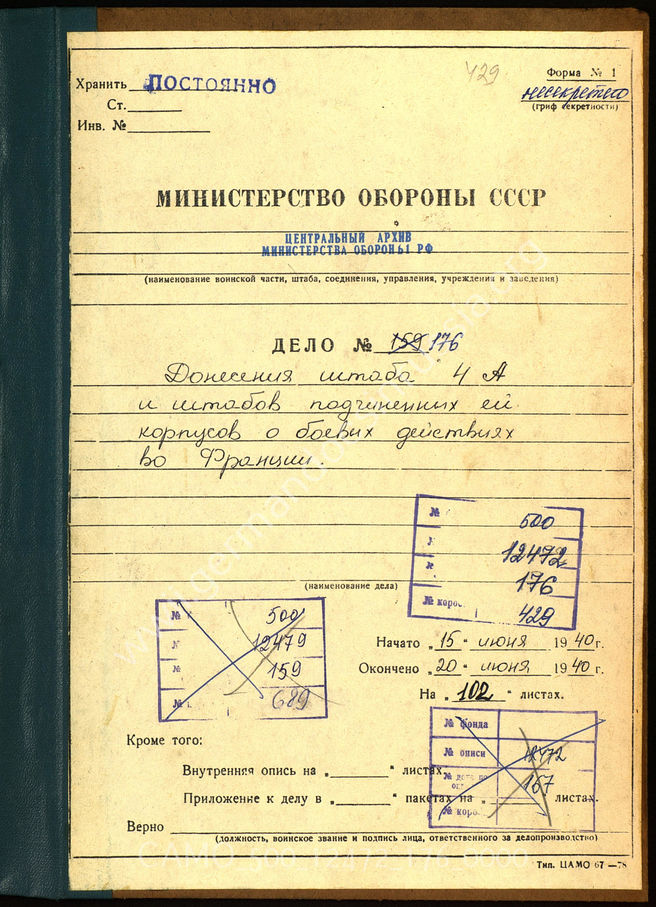 429
Форма № 1
Хранить ПОСТОЯННО
несекретно
(гриф секретности)
Ст.
Инв. №
МИНИСТЕРСТВО ОБОРОНЫ СССР
ЦЕНТРАЛЬНЫЙ АРХИВ
МИНИСТЕРСТВА ОБОРОНЫ РФ
(наименование воинской части, штаба, соединения, управления, учреждения и заведения)
ДЕЛО № 159 176
Донесения штаба 4 А
и штабов подчиненных ей
корпусов о боевых действиях
во Франции
№ 500
12472
176
№ короб 429
(наименование дела)
№ 500
12479
159
№ 689
Начато „15" июня 1940 г.
Окончено „20" июня 1940 г.
На „102" листах.
№ фонда
№ описи 12472
№ дела по оп. 167
№ короб
Кроме того:
Внутренняя опись на „ " листах.
Приложение к делу в „ " пакетах на „ " листах.
Верно
(должность, воинское звание и подпись лица, ответственного за делопроизводство)
Тип. ЦАМО 67—78